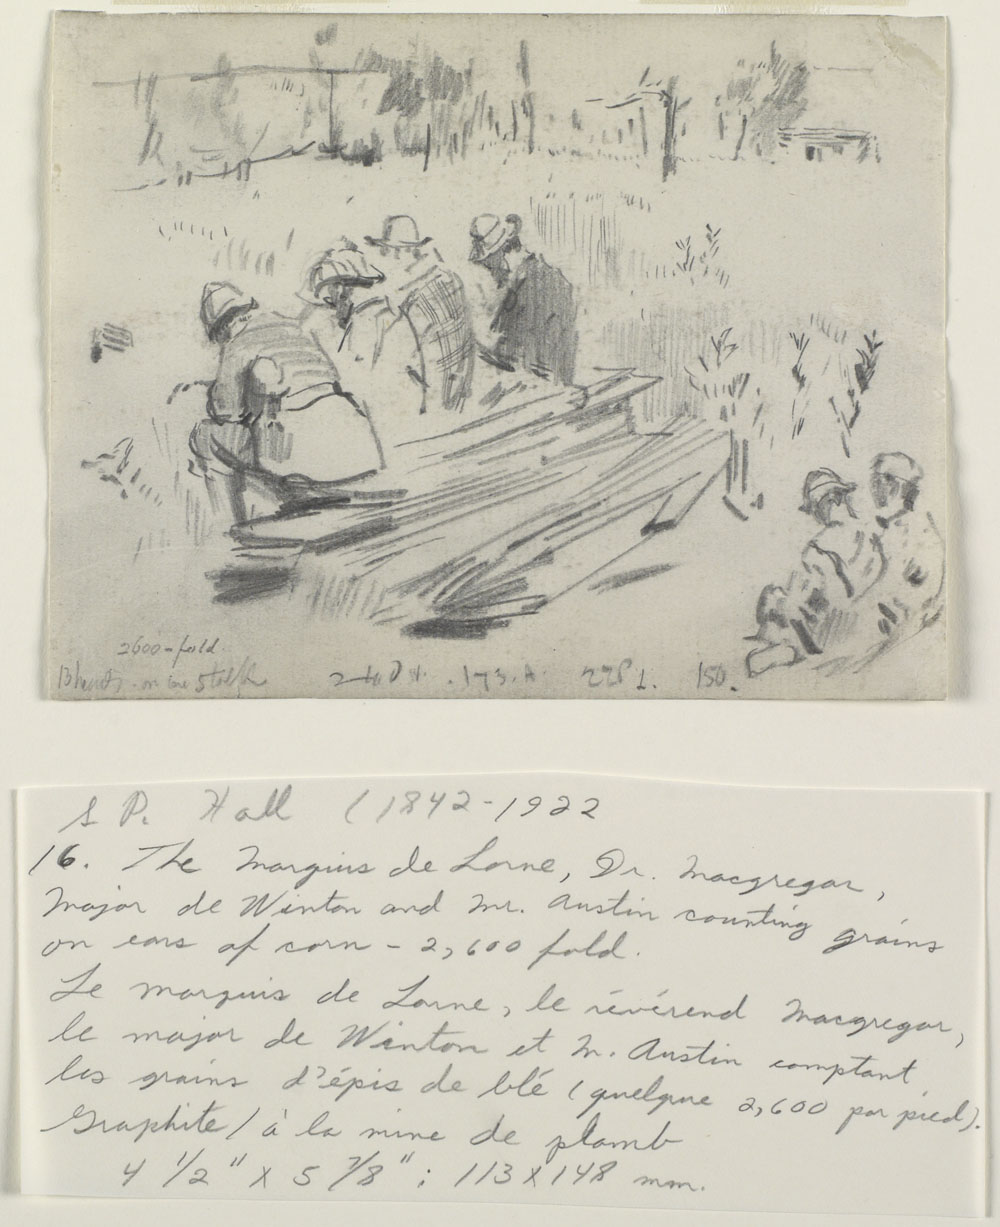 2600-fold
13 heads on one stalk
240 . 173. A. 150.
S P. Hall (1842-1922
16. The Marquis de Lorne, Dr. Macgregar,
Major de Winton and Mr. Austin counting grains
on ears of corn - 2,600 fold.
Le marquis de Lorne, le révérend Macgregar,
le major de Winton et M. Austin comptant
les grains d'épis de blé (quelque 2,600 par pied).
Graphite / à la mine de plomb
4 1/2" X 5 7/8" : 113 X 148 mm.